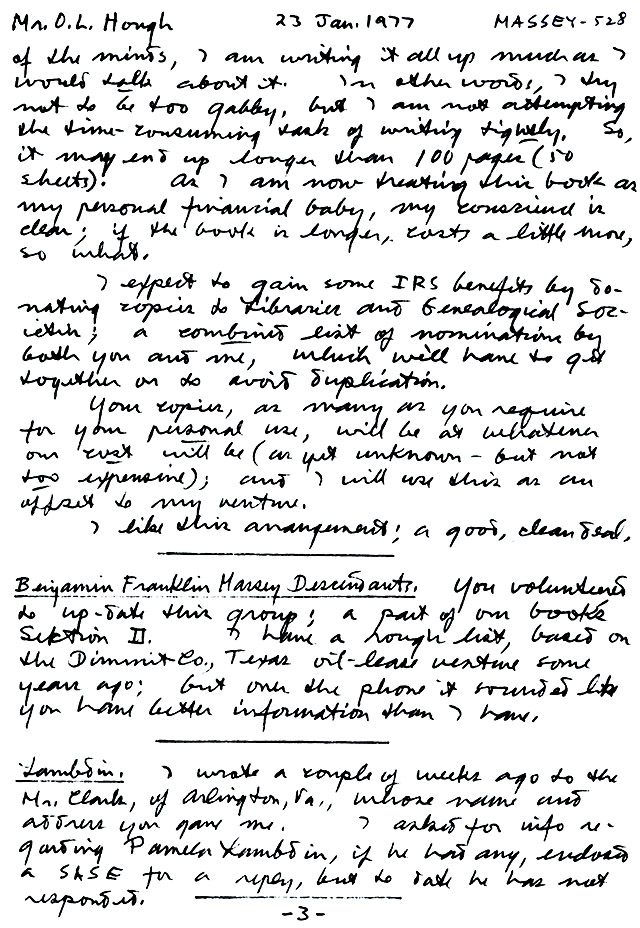 Mr. O.L. Hough 23 Jan. 1977 MASSEY-528
of the minds, I am writing it all up much as I
would talk about it. In other words, I try
not to be too gabby, but I am not attempting
the time-consuming task of writing tightly. So,
it may end up longer than 100 pages (50
sheets). As I am now treating this book as
my personal financial baby, my conscience is
clear; if the book is longer, costs a little more,
so what.
I expect to gain some IRS benefits by do-
nating copies to Libraries and Genealogical Soc-
ieties; a combined list of nominations by
both you and me, which will have to get
together on to avoid duplication.
Your copies, as many as you require
for your personal use, will be at whatever
our cost will be (as yet unknown - but not
too expensive); and I will use this as an
offset to my venture.
I like this arrangement; a good, clean deal.
Benjamin Franklin Massey Descendants. You volunteered
to up-date this group; a part of our books
Section II. I have a rough list, based on
the Dimmit Co., Texas oil-lease venture some
years ago; but over the phone it sounded like
you have better information than I have.
Lambdin. I wrote a couple of weeks ago to the
Mr. Clark, of Arlington, Va., whose name and
address you gave me. I asked for info re-
garding Pamela Lambdin, if he had any, enclosed
a SASE for a reply, but to date he has not
responded.
-3-